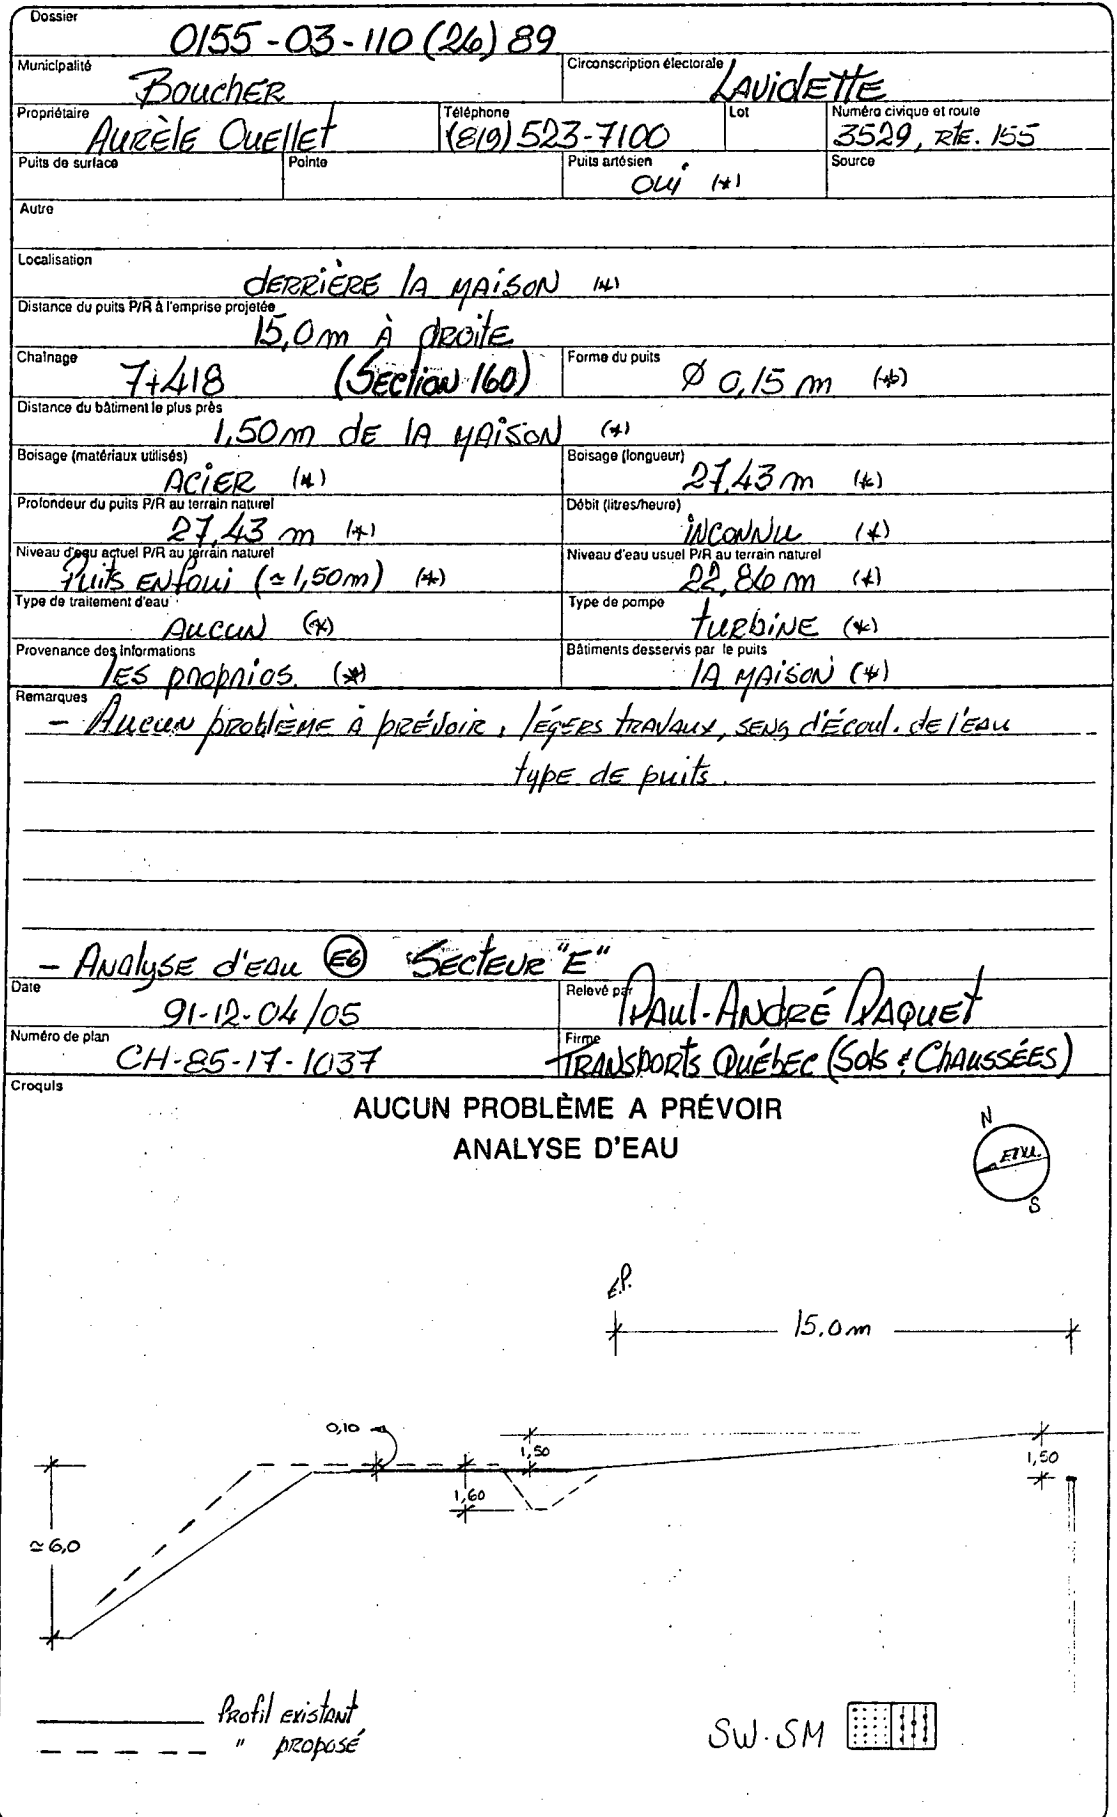 Dossier
0155-03-110 (26) 89
Municipalité
Boucher
Circonscription électorale
LAVIOLETTE
Propriétaire
AURÈLE OUELLET
Téléphone
(819) 523-7100
Lot
Numéro civique et route
3529, RTE. 155
Puits de surface
Pointe
Puits artésien
OUI (*)
Source
Autre
Localisation
DERRIÈRE LA MAISON (*)
Distance du puits P/R à l'emprise projetée
15,0 m À DROITE
Chaînage
7+418 (Section 160)
Forme du puits
Ø 0,15 m (*)
Distance du bâtiment le plus près
1,50 m DE LA MAISON (*)
Boisage (matériaux utilisés)
ACIER (*)
Boisage (longueur)
27,43 m (*)
Profondeur du puits P/R au terrain naturel
27,43 m (*)
Débit (litres/heure)
INCONNU (*)
Niveau d'eau actuel P/R au terrain naturel
Puits ENfoui (≃ 1,50m) (*)
Niveau d'eau usuel P/R au terrain naturel
22,86 m (*)
Type de traitement d'eau
AUCUN (*)
Type de pompe
TURBINE (*)
Provenance des informations
LES proprios. (*)
Bâtiments desservis par le puits
LA MAISON (*)
Remarques
- AUCUN problème à prévoir, légers travaux, sens d'écoul. de l'eau
type de puits.
- Analyse d'eau E6 Secteur "E"
Date
91-12-04/05
Relevé par
PAUL-ANDRÉ PAQUET
Numéro de plan
CH-85-17-1037
Firme
TRANSPORTS QUÉBEC (Sols & Chaussées)
Croquis
AUCUN PROBLÈME A PRÉVOIR
ANALYSE D'EAU
N
S
E.P.
15.0m
0,10
1,50
1,50
1,60
≃ 6,0
Profil existant
" proposé
SW-SM